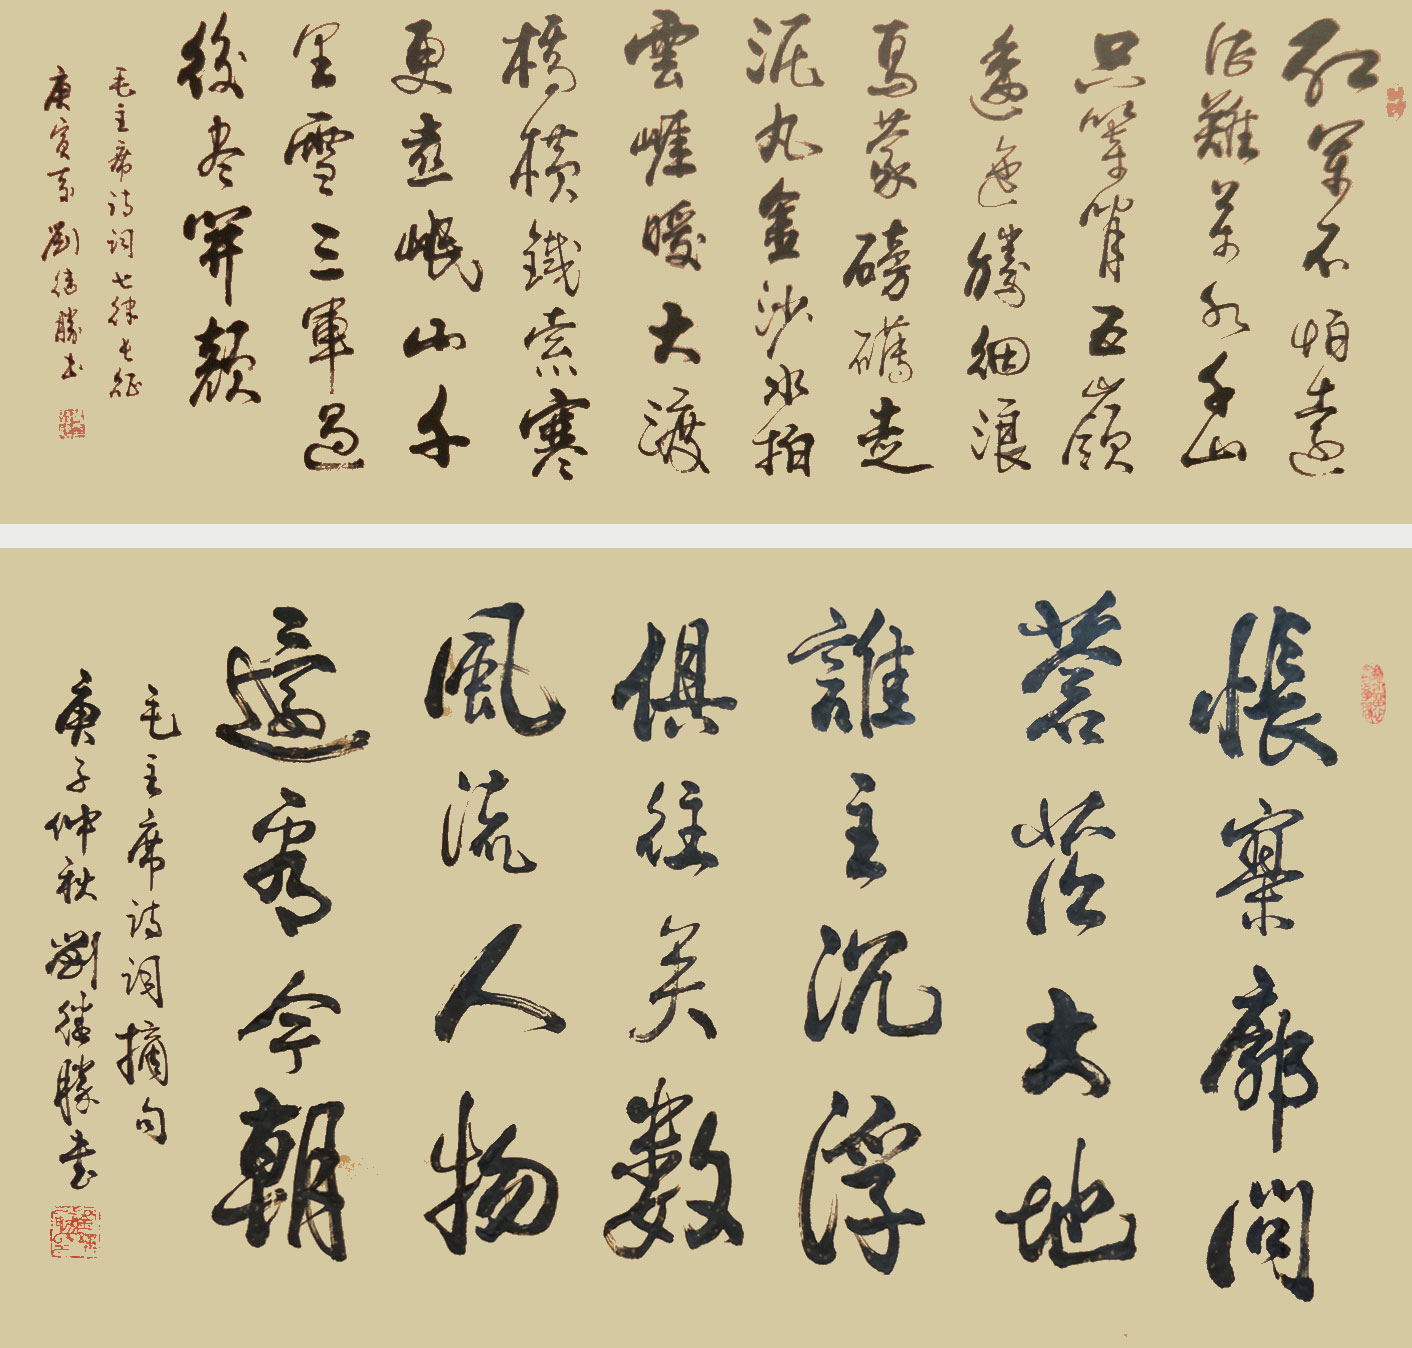 红軍不怕遠
征難萬水千山
只等閒五嶺
逶迤騰細浪
烏蒙磅礴走
泥丸金沙水拍
雲崖暖大渡
橋橫鐵索寒
更喜岷山千
里雪三軍過
後尽開顏
毛主席诗词七律长征
庚寅劉德勝书
悵寥廓問
蒼茫大地
誰主沉浮
俱往矣數
風流人物
還看今朝
毛主席诗词摘句
庚子仲秋劉德勝書